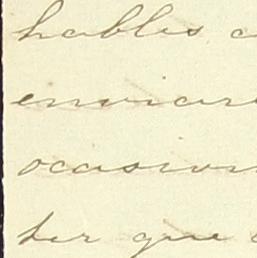 hables a
enviar
ocasion
ter que